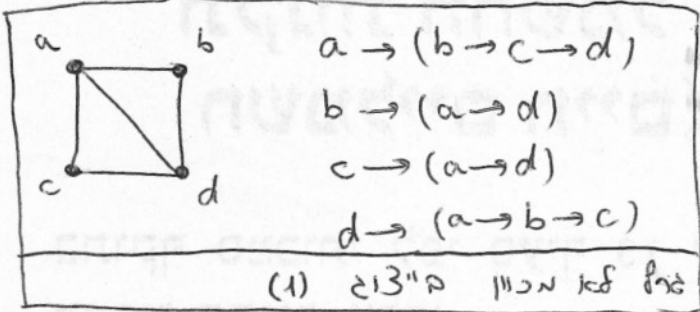 a b
c d
a → (b → c → d)
b → (a → d)
c → (a → d)
d → (a → b → c)
גרף לא מכוון בייצוג (1)